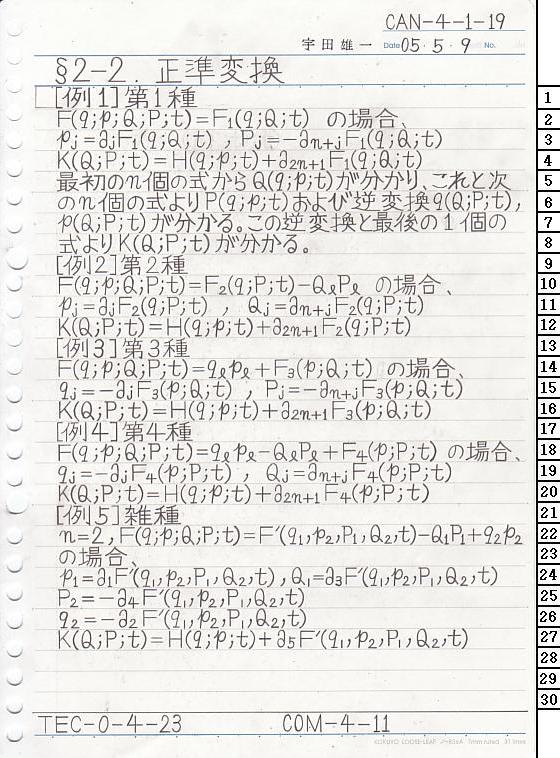 CAN-4-1-19
宇田雄一 Date 05・5・9 No.
§2-2. 正準変換
[例1]第1種
F(q;p;Q;P;t)=F₁(q;Q;t) の場合、
pⱼ=∂ⱼF₁(q;Q;t) , Pⱼ=-∂ₙ₊ⱼF₁(q;Q;t)
K(Q;P;t)=H(q;p;t)+∂₂ₙ₊₁F₁(q;Q;t)
最初のn個の式からQ(q;p;t)が分かり、これと次
のn個の式よりP(q;p;t)および逆変換q(Q;P;t),
p(Q;P;t)が分かる。この逆変換と最後の1個の
式よりK(Q;P;t)が分かる。
[例2]第2種
F(q;p;Q;P;t)=F₂(q;P;t)-QℓPℓ の場合、
pⱼ=∂ⱼF₂(q;P;t) , Qⱼ=∂ₙ₊ⱼF₂(q;P;t)
K(Q;P;t)=H(q;p;t)+∂₂ₙ₊₁F₂(q;P;t)
[例3]第3種
F(q;p;Q;P;t)=qℓpℓ+F₃(p;Q;t) の場合、
qⱼ=-∂ⱼF₃(p;Q;t) , Pⱼ=-∂ₙ₊ⱼF₃(p;Q;t)
K(Q;P;t)=H(q;p;t)+∂₂ₙ₊₁F₃(p;Q;t)
[例4]第4種
F(q;p;Q;P;t)=qℓpℓ-QℓPℓ+F₄(p;P;t) の場合、
qⱼ=-∂ⱼF₄(p;P;t) , Qⱼ=∂ₙ₊ⱼF₄(p;P;t)
K(Q;P;t)=H(q;p;t)+∂₂ₙ₊₁F₄(p;P;t)
[例5]雑種
n=2,F(q;p;Q;P;t)=F′(q₁,p₂,P₁,Q₂,t)-Q₁P₁+q₂p₂
の場合、
p₁=∂₁F′(q₁,p₂,P₁,Q₂,t),Q₁=∂₃F′(q₁,p₂,P₁,Q₂,t)
P₂=-∂₄F′(q₁,p₂,P₁,Q₂,t)
q₂=-∂₂F′(q₁,p₂,P₁,Q₂,t)
K(Q;P;t)=H(q;p;t)+∂₅F′(q₁,p₂,P₁,Q₂,t)
TEC-0-4-23 COM-4-11
KOKUYO LOOSE-LEAF ノ-836A 7mm ruled 31 lines
1
2
3
4
5
6
7
8
9
10
11
12
13
14
15
16
17
18
19
20
21
22
23
24
25
26
27
28
29
30